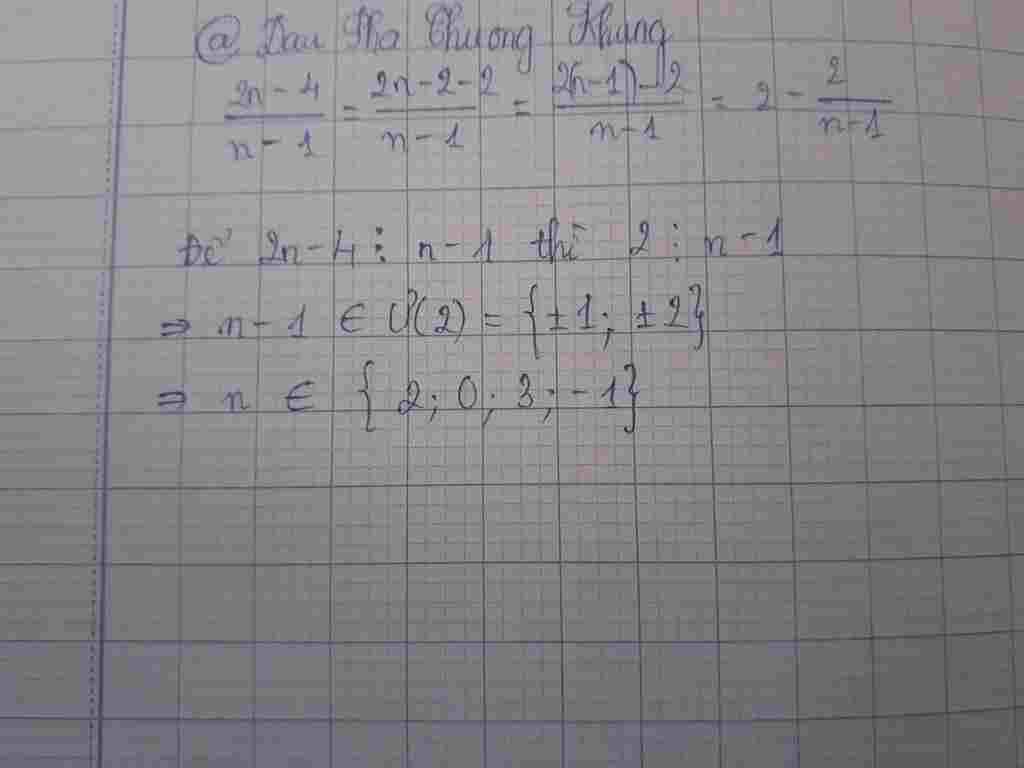 @ Dau Tha Chuong Khang
\frac{2n-4}{n-1} = \frac{2n-2-2}{n-1} = \frac{2(n-1)-2}{n-1} = 2 - \frac{2}{n-1}
Để 2n-4 ⋮ n-1 thì 2 ⋮ n-1
⇒ n-1 ∈ Ư(2) = {±1; ±2}
⇒ n ∈ {2; 0; 3; -1}